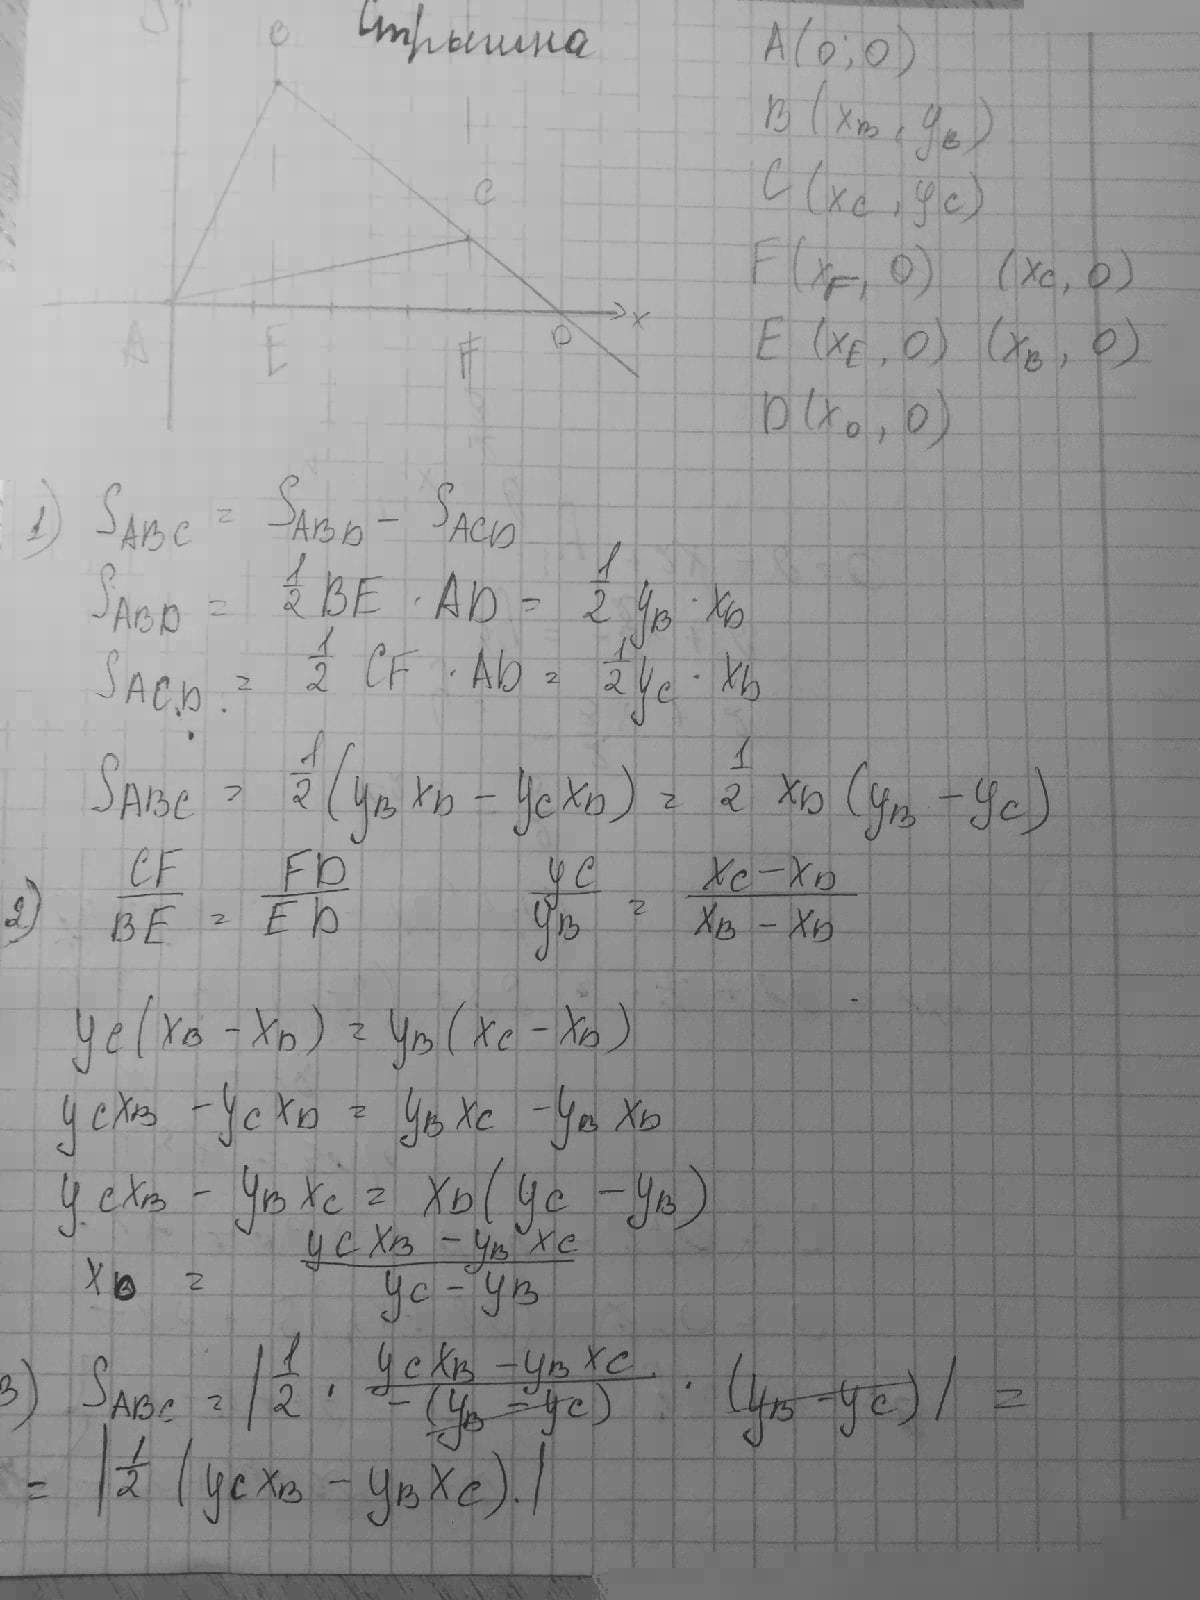 Стрышна
y
B
C
A E F D x
A(0;0)
B(x_B, y_B)
C(x_C, y_C)
F(x_F, 0) (x_C, 0)
E(x_E, 0) (x_B, 0)
D(x_D, 0)
1) S_ABC = S_ABD - S_ACD
S_ABD = 1/2 BE · AD = 1/2 y_B · x_D
S_ACD = 1/2 CF · AD = 1/2 y_C · x_D
S_ABC = 1/2 (y_B x_D - y_C x_D) = 1/2 x_D (y_B - y_C)
2) CF/BE = FD/ED y_C/y_B = (x_C - x_D)/(x_B - x_D)
y_C(x_B - x_D) = y_B(x_C - x_D)
y_C x_B - y_C x_D = y_B x_C - y_B x_D
y_C x_B - y_B x_C = x_D(y_C - y_B)
x_D = (y_C x_B - y_B x_C)/(y_C - y_B)
3) S_ABC = |1/2 · (y_C x_B - y_B x_C)/(-(y_B - y_C)) · (y_B - y_C)| =
= |1/2 (y_C x_B - y_B x_C).|